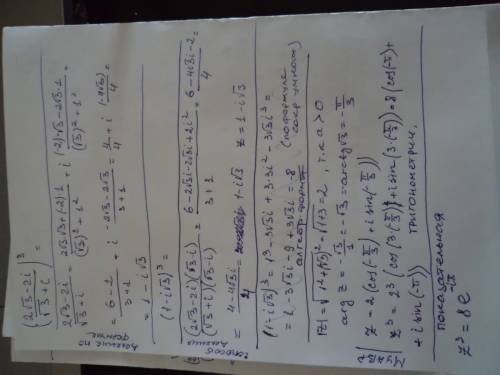 (2√3-2i / √3+i)³ =
деление по формуле
2√3-2i / √3+i = 2√3·√3+(-2)·1 / (√3)²+1² + i (-2)·√3-2√3·1 / (√3)²+1² =
= 6-2 / 3+1 + i -2√3-2√3 / 3+1 = 4/4 + i (-4√3) / 4 =
= 1-i√3
(1-i√3)³ =
2 способ деления
(2√3-2i)(√3-i) / (√3+i)(√3-i) = 6-2√3i-2√3i+2i² / 3+1 = 6-4√3i-2 / 4 =
= 4-4√3i / 4 = 1-i√3 z=1-i√3
(1-i√3)³ = 1³-3√3i+3·3i²-3√3i³ =
= 1-3√3i-9+3√3i = -8 (по формуле сокр умнож)
алгебр форма
|z| = √1²+(√3)² = √1+3 = 2, т.к a>0
arg z = -√3/1 = -√3 = -arctg√3 = -π/3
z = 2(cos(-π/3)+i sin(-π/3))
Муавр z³ = 2³(cos(3·(-π/3))+i sin(3·(-π/3))) = 8(cos(-π)+
+i sin(-π)) тригонометрич.
показательная
z³ = 8e^-iπ